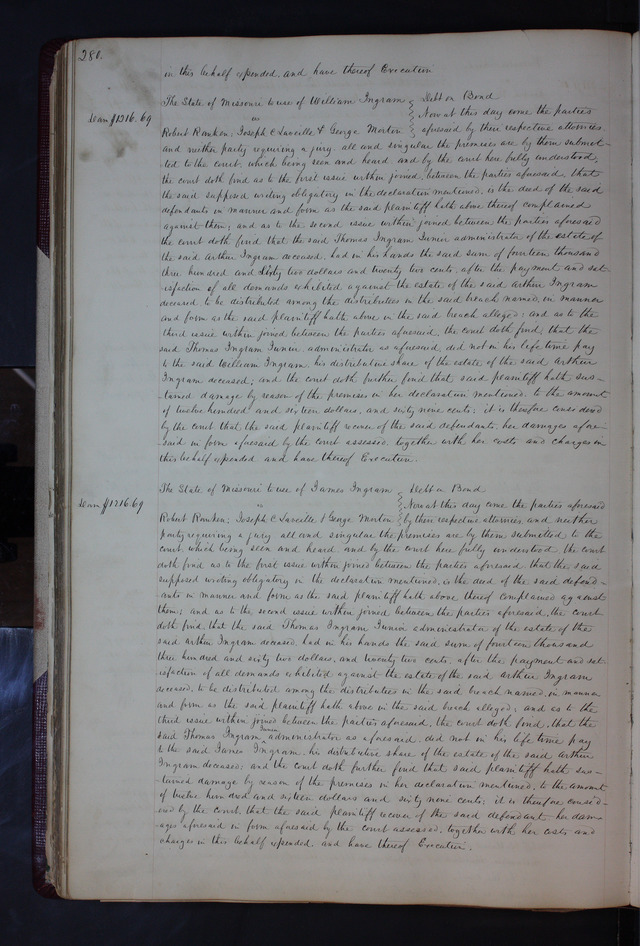 280.
in this behalf expended, and have thereof Execution
The State of Missouri to use of William Ingram } Debt on Bond
Dam $1216.69 vs } Now at this day come the parties
Robert Rankin, Joseph C Laveille & George Morton } aforesaid by their respective attornies,
and neither party requiring a jury all and singular the premises are by them submit-
ted to the court, which being seen and heard and by the court here fully understood,
the court doth find as to the first issue within joined, between the parties aforesaid that
the said supposed writing obligatory in the declaration mentioned, is the deed of the said
defendants in manner and form as the said plaintiff hath above thereof complained
against them; and as to the second issue within joined between the parties aforesaid
the court doth find that the said Thomas Ingram Junior administrator of the estate of
the said Arthur Ingram deceased, had in his hands the said sum of fourteen thousand
three hundred and sixty two dollars and twenty two cents, after the payment and sat-
isfaction of all demands exhibited against the estate of the said Arthur Ingram
deceased, to be distributed among the distributees in the said breach named, in manner
and form as the said plaintiff hath above in the said breach alleged; and as to the
third issue within joined between the parties aforesaid, the court doth find, that the
said Thomas Ingram Junior, administrator as aforesaid, did not in his life time pay
to the said William Ingram his distributive share of the estate of the said Arthur
Ingram deceased; and the court doth further find that said plaintiff hath sus-
tained damage by reason of the premises in her declaration mentioned, to the amount
of twelve hundred and sixteen dollars, and sixty nine cents; it is therefore considered
by the court that the said plaintiff recover of the said defendants, her damages afore-
said in form aforesaid by the court assessed, together with her costs and charges in
this behalf expended and have thereof Execution.
The State of Missouri to use of James Ingram } Debt on Bond
Dam $1216.69 vs } Now at this day come the parties aforesaid
Robert Rankin, Joseph C Laveille & George Morton } by their respective attornies, and neither
party requiring a jury all and singular the premises are by them submitted to the
court, which being seen and heard and by the court here fully understood, the court
doth find as to the first issue within joined between the parties aforesaid that the said
supposed writing obligatory in the declaration mentioned, is the deed of the said defend-
ants in manner and form as the said plaintiff hath above thereof complained against
them; and as to the second issue within joined between the parties aforesaid, the court
doth find, that the said Thomas Ingram Junior administrator of the estate of the
said Arthur Ingram deceased, had in his hands the said sum of fourteen thousand
three hundred and sixty two dollars, and twenty two cents, after the payment and sat-
isfaction of all demands exhibited against the estate of the said Arthur Ingram
deceased, to be distributed among the distributees in the said breach named, in manner
and form as the said plaintiff hath above in the said breach alleged; and as to the
third issue within joined between the parties aforesaid, the court doth find, that the
said Thomas Ingram Junior, administrator as aforesaid, did not in his life time pay
to the said James Ingram, his distributive share of the estate of the said Arthur
Ingram deceased; and the court doth further find that said plaintiff hath sus-
tained damage by reason of the premises in her declaration mentioned, to the amount
of twelve hundred and sixteen dollars and sixty nine cents; it is therefore consid-
ered by the court, that the said plaintiff recover of the said defendants her dam-
ages aforesaid in form aforesaid by the court assessed, together with her costs and
charges in this behalf expended, and have thereof Execution.